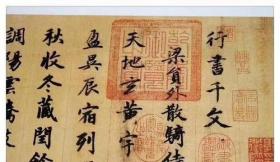 行書千文
梁員外散騎侍
天地玄黃宇
盈昃辰宿列
秋收冬藏閏餘
調陽雲騰